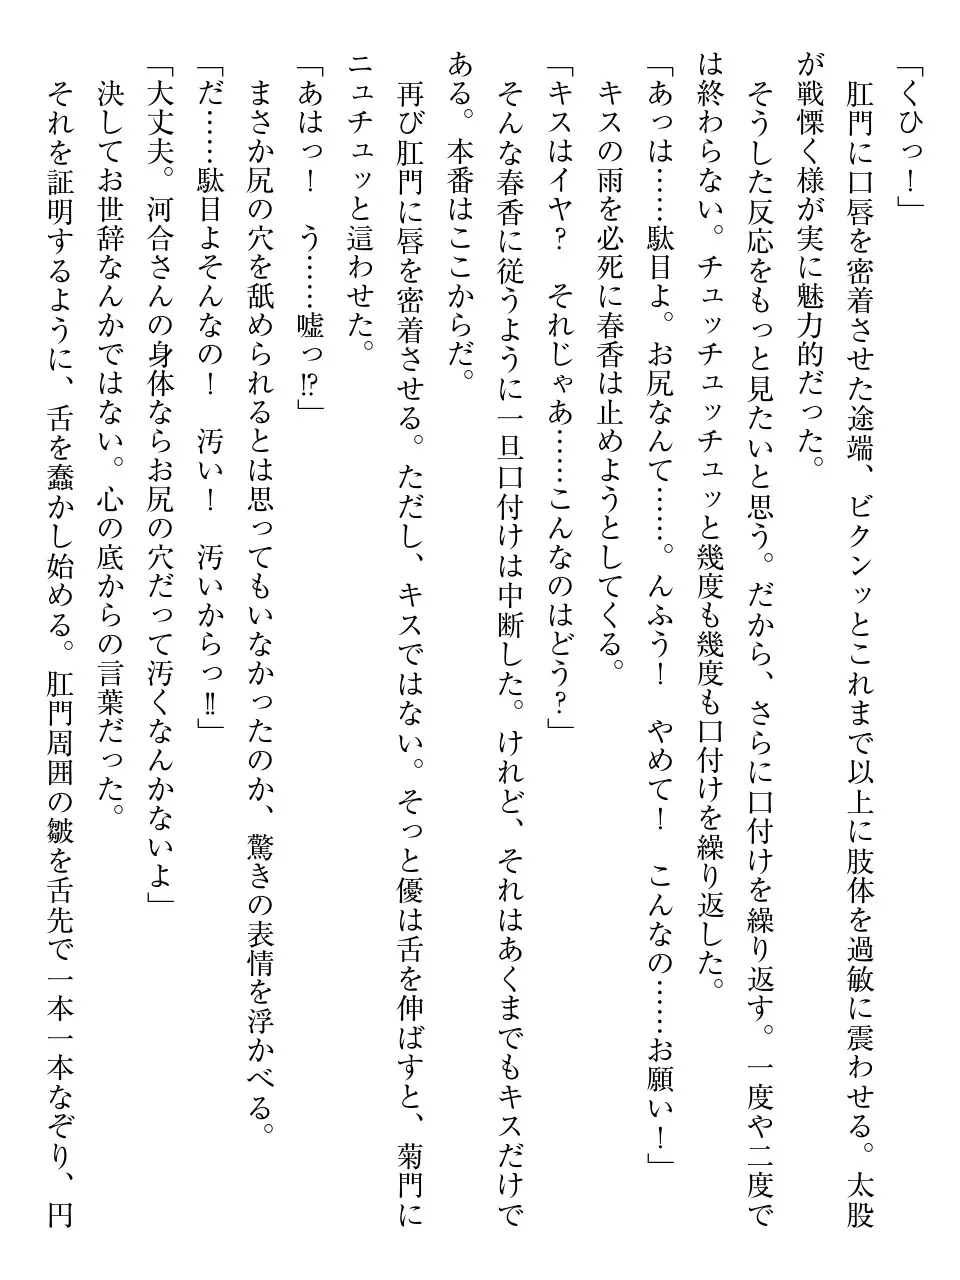 「くひっ！」
　肛門に口唇を密着させた途端、ビクンッとこれまで以上に肢体を過敏に震わせる。太股
が戦慄く様が実に魅力的だった。
　そうした反応をもっと見たいと思う。だから、さらに口付けを繰り返す。一度や二度で
は終わらない。チュッチュッチュッと幾度も幾度も口付けを繰り返した。
「あっは……駄目よ。お尻なんて……。んふう！　やめて！　こんなの……お願い！」
　キスの雨を必死に春香は止めようとしてくる。
「キスはイヤ？　それじゃあ……こんなのはどう？」
　そんな春香に従うように一旦口付けは中断した。けれど、それはあくまでもキスだけで
ある。本番はここからだ。
　再び肛門に唇を密着させる。ただし、キスではない。そっと優は舌を伸ばすと、菊門に
ニュチュッと這わせた。
「あはっ！　う……嘘っ⁉」
　まさか尻の穴を舐められるとは思ってもいなかったのか、驚きの表情を浮かべる。
「だ……駄目よそんなの！　汚い！　汚いからっ‼」
「大丈夫。河合さんの身体ならお尻の穴だって汚くなんかないよ」
　決してお世辞なんかではない。心の底からの言葉だった。
　それを証明するように、舌を蠢かし始める。肛門周囲の皺を舌先で一本一本なぞり、円